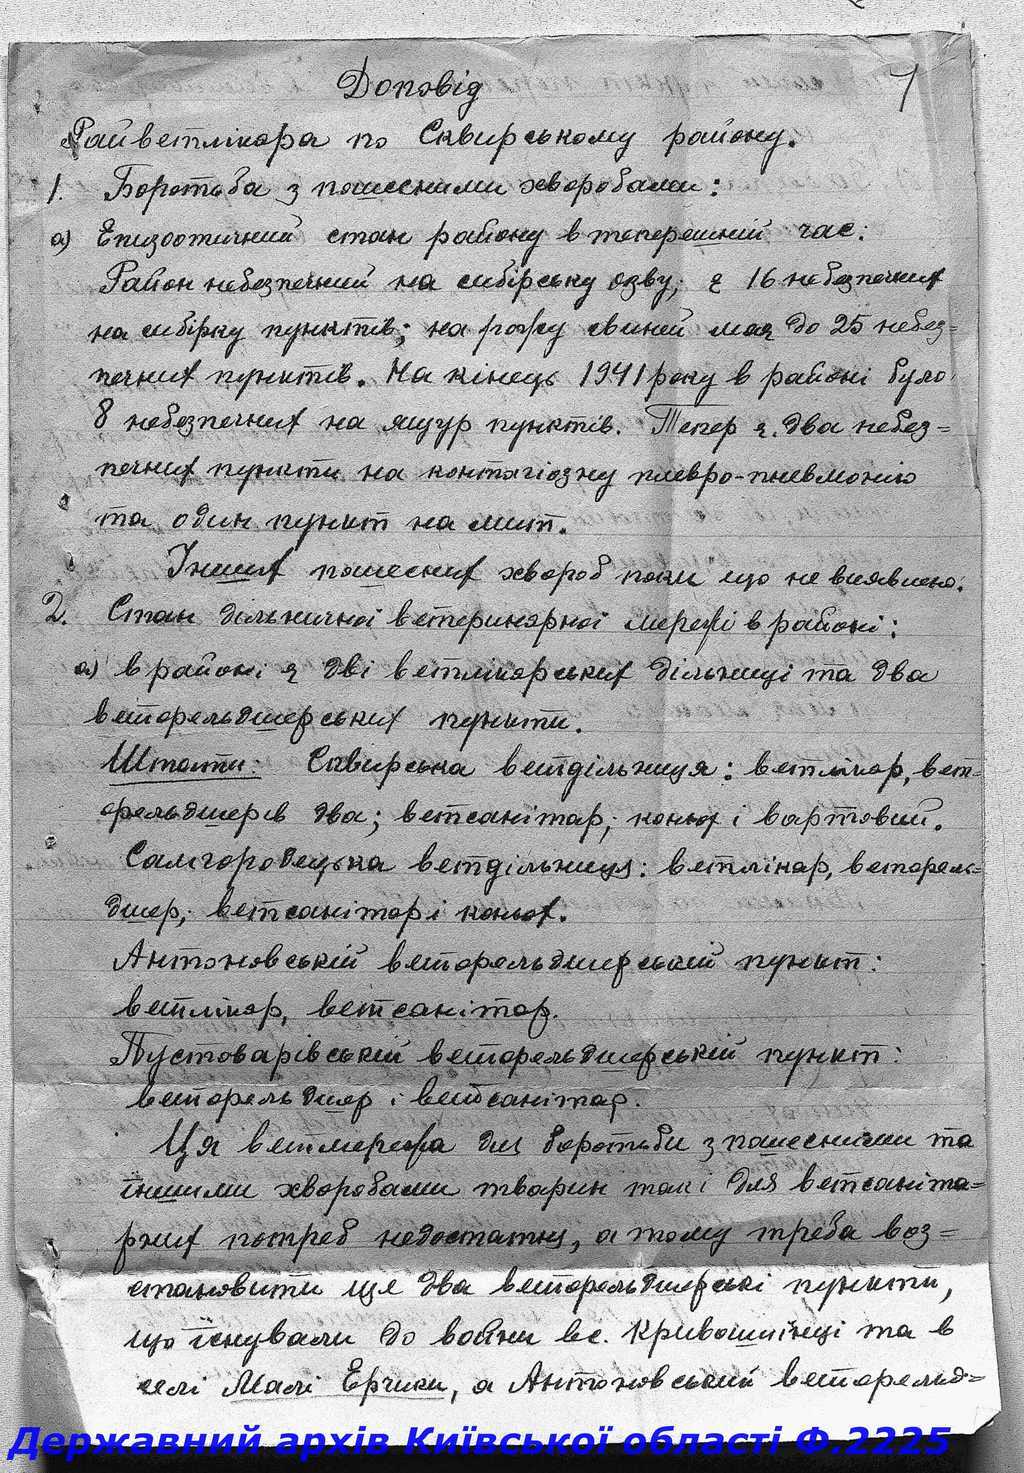 Доповід
7
Райветлікара по Сквирському району.
1. Боротьба з пошесними хворобами:
а) Епизоотичний стан району в теперешній час:
Район небезпечний на сибірську язву; є 16 небезпечних
на сибірку пунктів; на рожу свиней має до 25 небез=
печних пунктів. На кінець 1941 року в районі було
8 небезпечних на ящур пунктів. Тепер є два небез=
печних пункти на контагіозну плевро-пневмонію
та один пункт на мит.
Інших пошесних хвороб поки що не виявлено.
2. Стан дільничної ветеринарної мережі в районі:
а) в районі є дві ветлікарських дільниці та два
ветфельдшерських пункти.
Штати: Сквирська ветдільниця: ветлікар, вет=
фельдшерів два; ветсанітар; конюх і вартовий.
Самгородецька ветдільниця: ветлікар, ветфель=
дшер; ветсанітар і конюх.
Антоновській ветфельдшерській пункт:
ветлікар, ветсанітар.
Пустоварівській ветфельдшерській пункт:
ветфельдшер і ветсанітар.
Ця ветмережа для боротьби з пошесними та
іншими хворобами тварин так і для ветсаніта=
рних потреб недостатня, а тому треба воз=
становити ще два ветфельдшерські пункти,
що існували до войни в с. Кривошиїнці та в
селі Малі Ерчики, а Антоновський ветфельд=
Державний архів Київської області Ф.2225